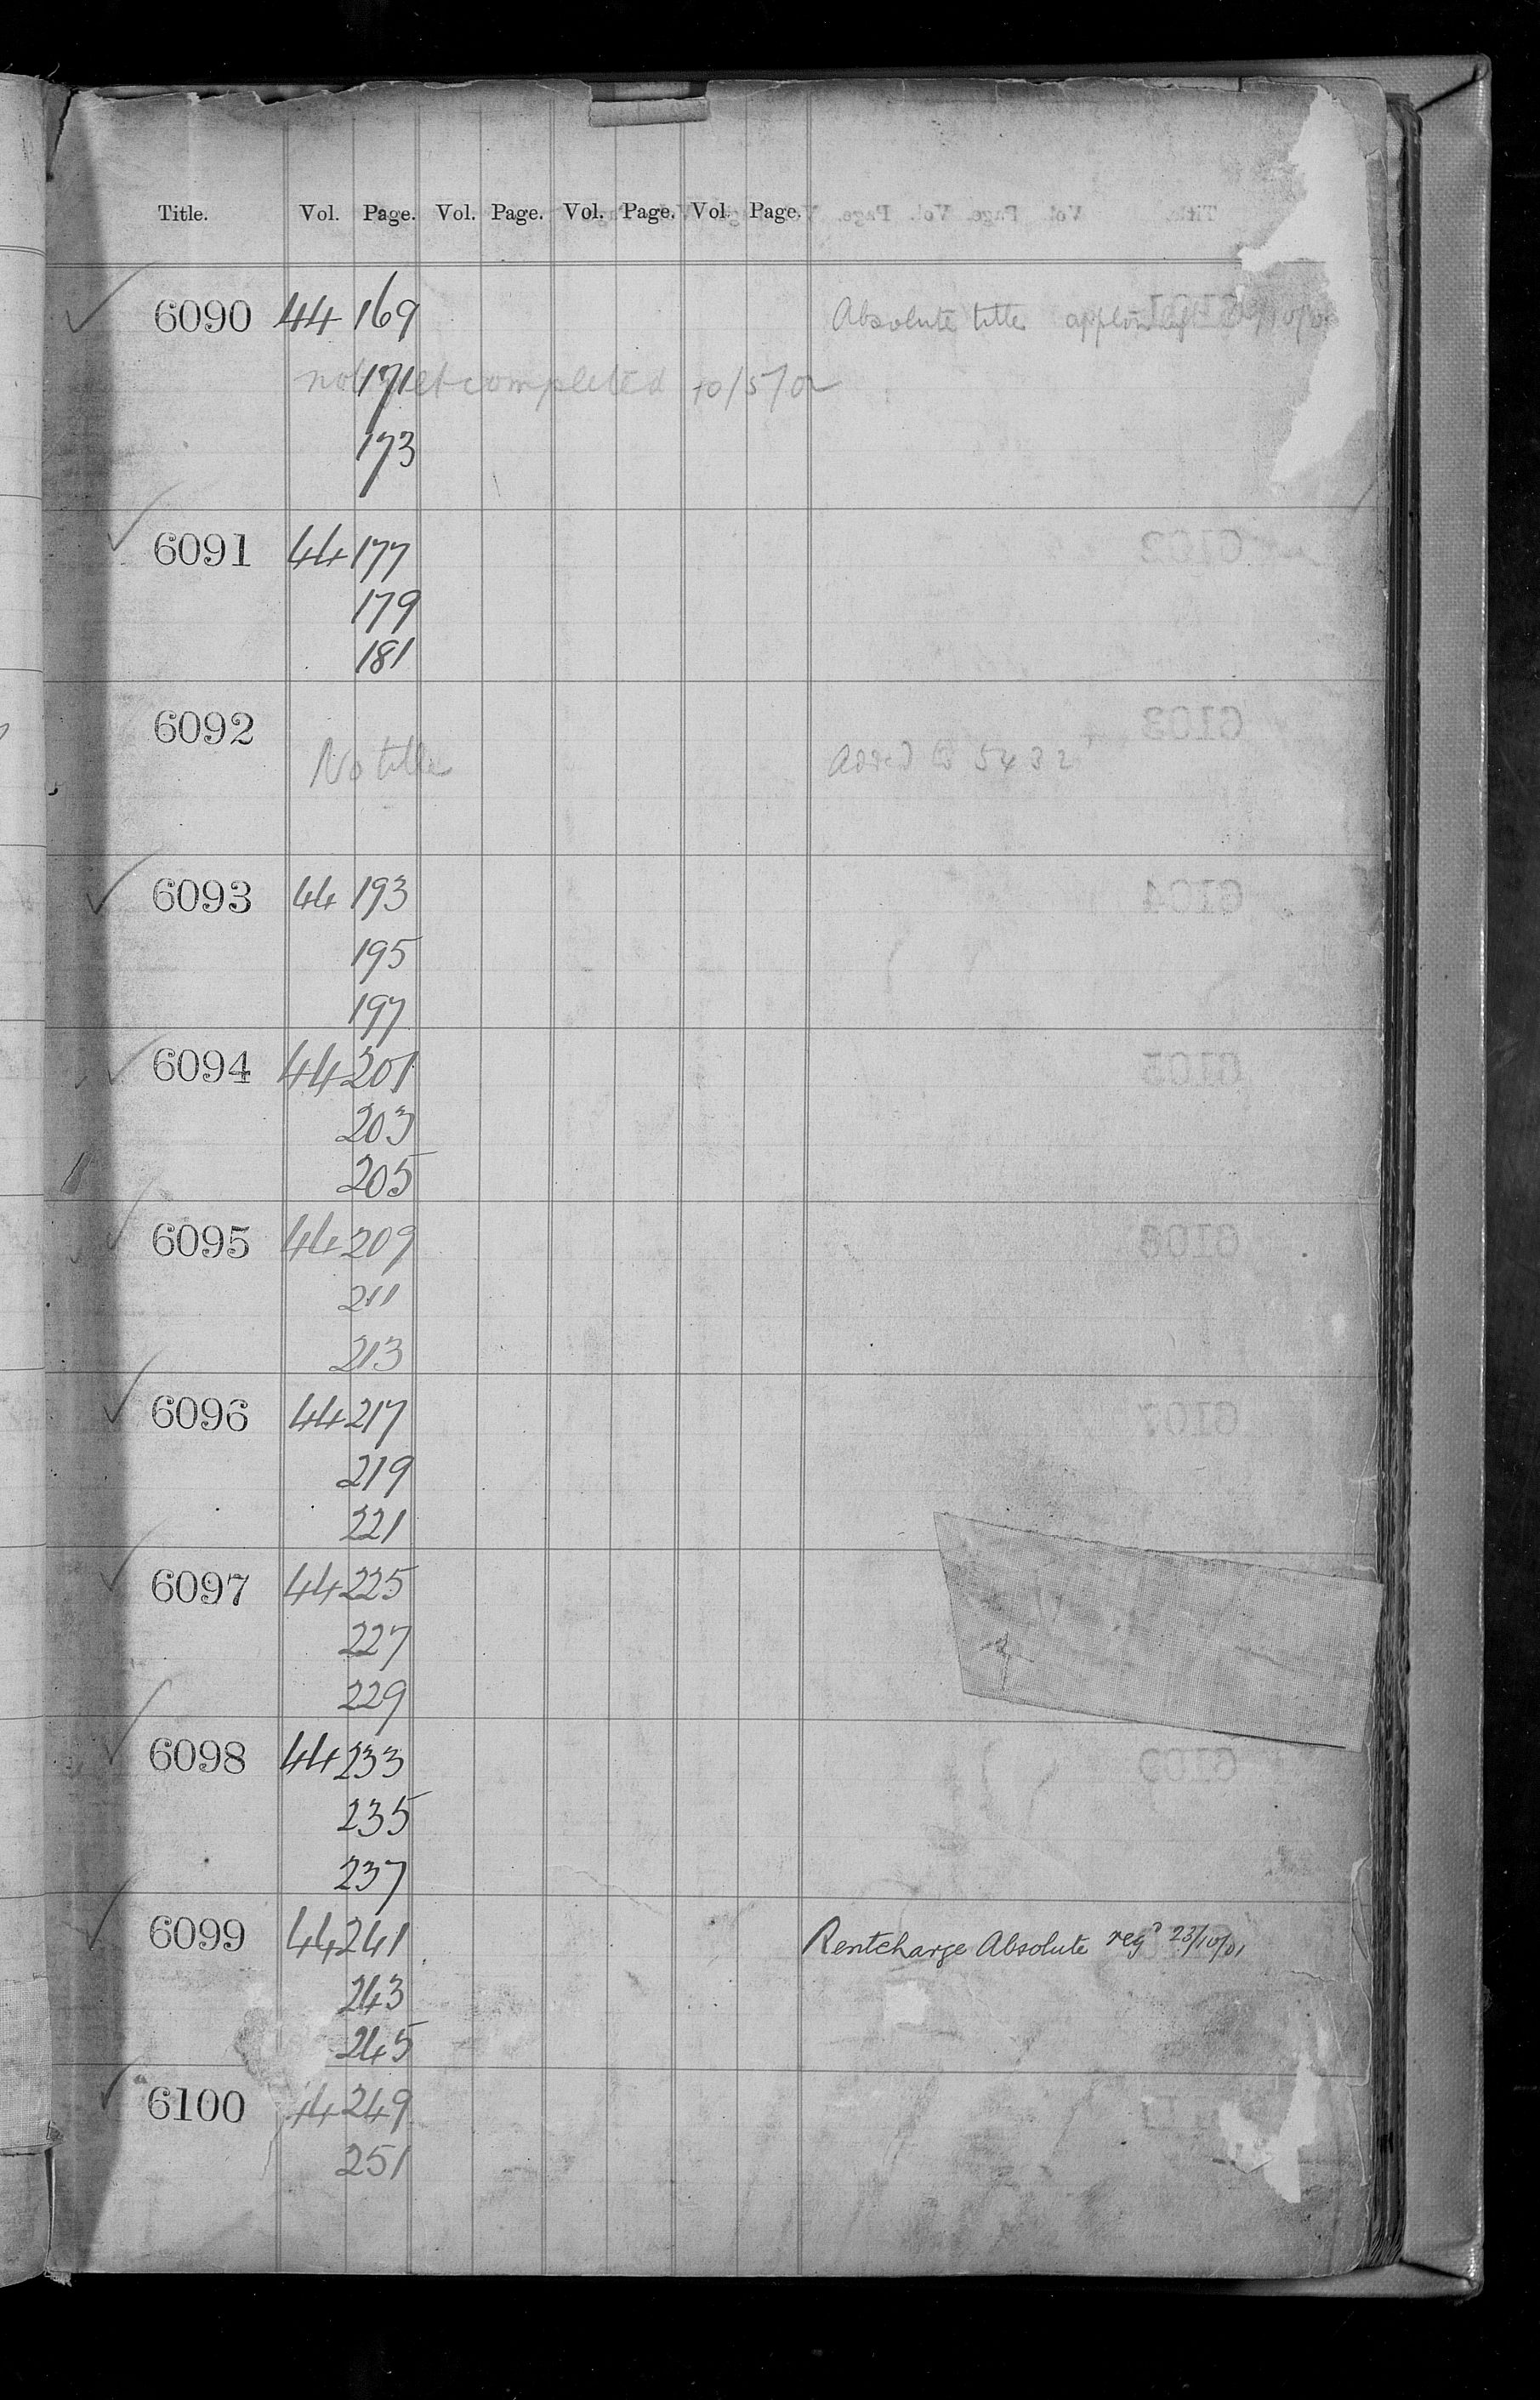 Title. Vol. Page. Vol. Page. Vol. Page. Vol. Page.
6090 44 169 Absolute title
171
not yet completed 10/5/02
173
6091 44 177
179
181
6092
No title Added to 5432
6093 44 193
195
197
6094 44 201
203
205
6095 44 209
211
213
6096 44 217
219
221
6097 44 225
227
229
6098 44 233
235
237
6099 44 241 Rentcharge Absolute regd 23/10/01
243
245
6100 44 249
251